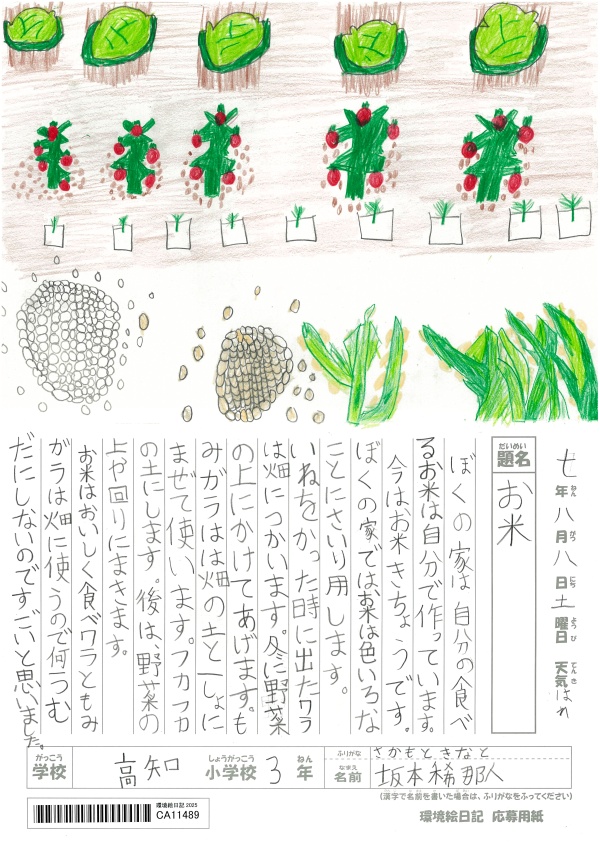 七年八月八日土曜日 天気はれ
ねん がつ にち ようび てんき
だいめい
題名
お米
ぼくの家は自分の食べ
るお米は自分で作っています。
今は、お米きちょうです。
ぼくの家ではお米は色いろな
ことにさいり用します。
いねをかった時に出たワラ
は畑につかいます。冬に野菜
の上にかけてあげます。も
みガラはは畑の土といっしょに
まぜて使います。フカフカ
の土にします。後は、野菜の
上や回りにまきます。
お米はおいしく食べワラともみ
ガラは畑に使うので何うむ
だにしないのですごいと思いました。
がっこう しょうがっこう ねん
学校 高知 小学校 3年
ふりがな さかもと きなと
なまえ
名前 坂本稀那人
(漢字で名前を書いた場合は、ふりがなをふってください)
環境絵日記 2025
CA11489
環境絵日記 応募用紙